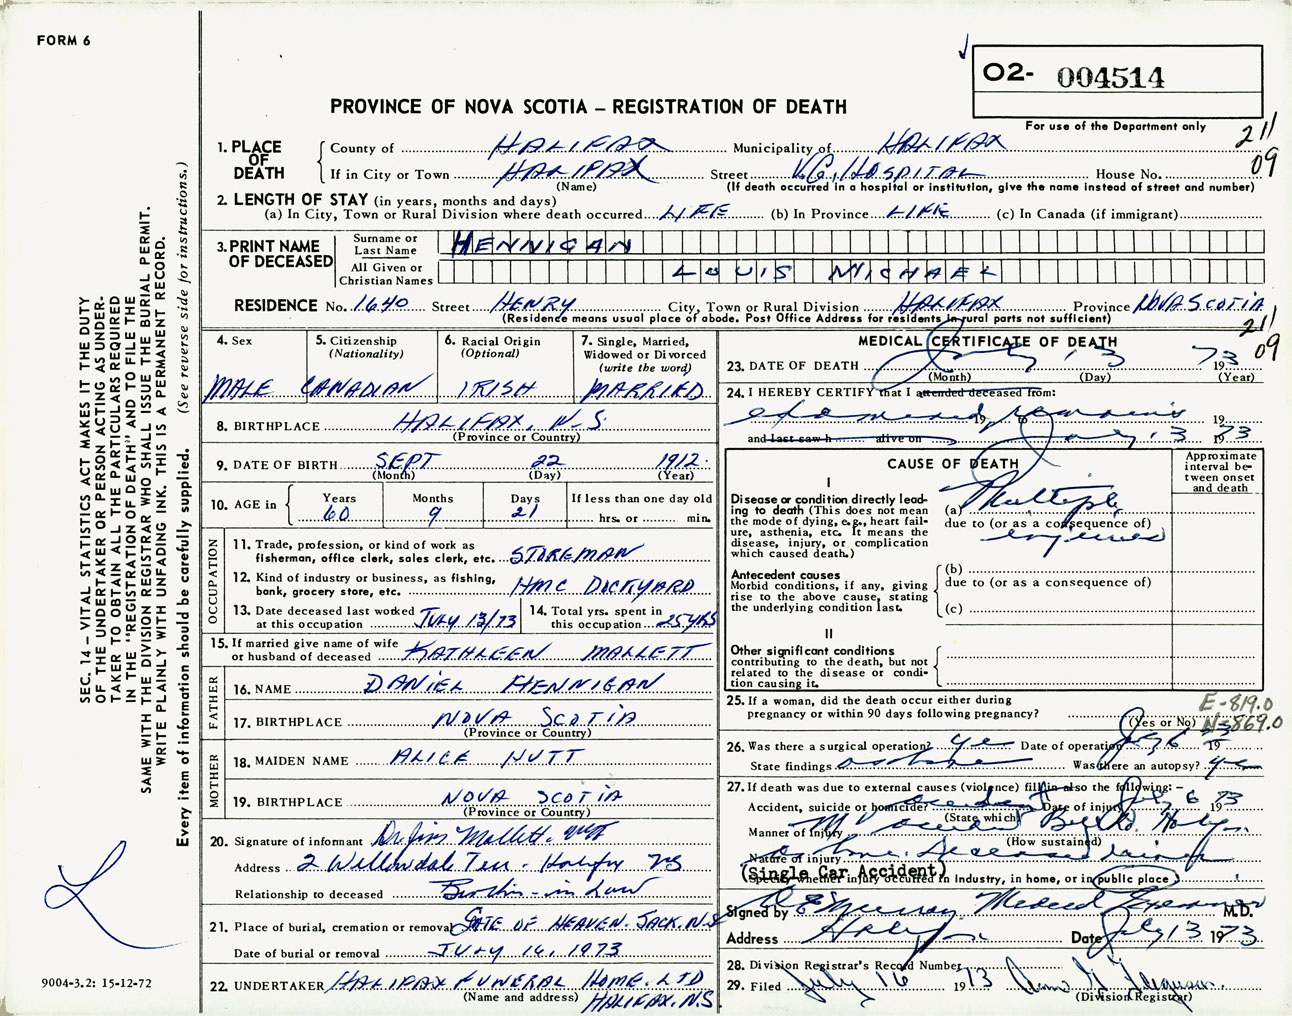 FORM 6
O2- 004514
PROVINCE OF NOVA SCOTIA – REGISTRATION OF DEATH
For use of the Department only
211
09
1. PLACE OF DEATH
County of HALIFAX Municipality of HALIFAX
If in City or Town HALIFAX Street V.G. HOSPITAL House No.
(Name) (If death occurred in a hospital or institution, give the name instead of street and number)
2. LENGTH OF STAY (in years, months and days)
(a) In City, Town or Rural Division where death occurred LIFE (b) In Province LIFE (c) In Canada (if immigrant)
3. PRINT NAME OF DECEASED
Surname or Last Name HENNIGAN
All Given or Christian Names LOUIS MICHAEL
RESIDENCE No. 1640 Street HENRY City, Town or Rural Division HALIFAX Province NOVA SCOTIA
(Residence means usual place of abode. Post Office Address for residents in rural parts not sufficient)
211
09
4. Sex MALE
5. Citizenship (Nationality) CANADIAN
6. Racial Origin (Optional) IRISH
7. Single, Married, Widowed or Divorced (write the word) MARRIED
8. BIRTHPLACE HALIFAX, N.S.
(Province or Country)
9. DATE OF BIRTH SEPT 22 1912
(Month) (Day) (Year)
10. AGE in Years 60 Months 9 Days 21
If less than one day old
hrs. or min.
OCCUPATION
11. Trade, profession, or kind of work as fisherman, office clerk, sales clerk, etc. STOREMAN
12. Kind of industry or business, as fishing, bank, grocery store, etc. HMC DOCKYARD
13. Date deceased last worked at this occupation JULY 13/73
14. Total yrs. spent in this occupation 25 YRS
15. If married give name of wife or husband of deceased KATHLEEN MALLETT
FATHER
16. NAME DANIEL HENNIGAN
17. BIRTHPLACE NOVA SCOTIA
(Province or Country)
MOTHER
18. MAIDEN NAME ALICE NUTT
19. BIRTHPLACE NOVA SCOTIA
(Province or Country)
20. Signature of informant Mallett
Address 2 Willowdale Terr. Halifax NS
Relationship to deceased Brother-in Law
21. Place of burial, cremation or removal GATE OF HEAVEN. SACK. N.S
Date of burial or removal JULY 16, 1973
22. UNDERTAKER HALIFAX FUNERAL HOME. LTD
(Name and address) HALIFAX, N.S.
MEDICAL CERTIFICATE OF DEATH
23. DATE OF DEATH July 13 1973
(Month) (Day) (Year)
24. I HEREBY CERTIFY that I attended deceased from:
examined remains 19 19
and last saw h alive on July 13 1973
CAUSE OF DEATH
Approximate interval between onset and death
I
Disease or condition directly leading to death (This does not mean the mode of dying, e.g., heart failure, asthenia, etc. It means the disease, injury, or complication which caused death.)
(a) Multiple
due to (or as a consequence of)
injuries
Antecedent causes
Morbid conditions, if any, giving rise to the above cause, stating the underlying condition last.
(b)
due to (or as a consequence of)
(c)
II
Other significant conditions contributing to the death, but not related to the disease or condition causing it.
25. If a woman, did the death occur either during pregnancy or within 90 days following pregnancy?
(Yes or No)
E-819.0
N-869.0
26. Was there a surgical operation? yes Date of operation July 6 1973
State findings as above Was there an autopsy? yes
27. If death was due to external causes (violence) fill in also the following: –
Accident, suicide or homicide? accident Date of injury July 6 1973
(State which)
Manner of Injury MV accident
(How sustained)
Nature of injury as above. Deceased driver
(Single Car Accident)
Specify whether injury occurred in industry, in home, or in public place
Signed by Murray Medical Examiner M.D.
Address Halifax Date July 13 1973
28. Division Registrar's Record Number
29. Filed July 16 1973 Ferguson
(Division Registrar)
SEC. 14 – VITAL STATISTICS ACT MAKES IT THE DUTY
OF THE UNDERTAKER OR PERSON ACTING AS UNDER-
TAKER TO OBTAIN ALL THE PARTICULARS REQUIRED
IN THE "REGISTRATION OF DEATH" AND TO FILE THE
SAME WITH THE DIVISION REGISTRAR WHO SHALL ISSUE THE BURIAL PERMIT.
WRITE PLAINLY WITH UNFADING INK. THIS IS A PERMANENT RECORD.
Every item of information should be carefully supplied. (See reverse side for instructions.)
9004-3.2: 15-12-72